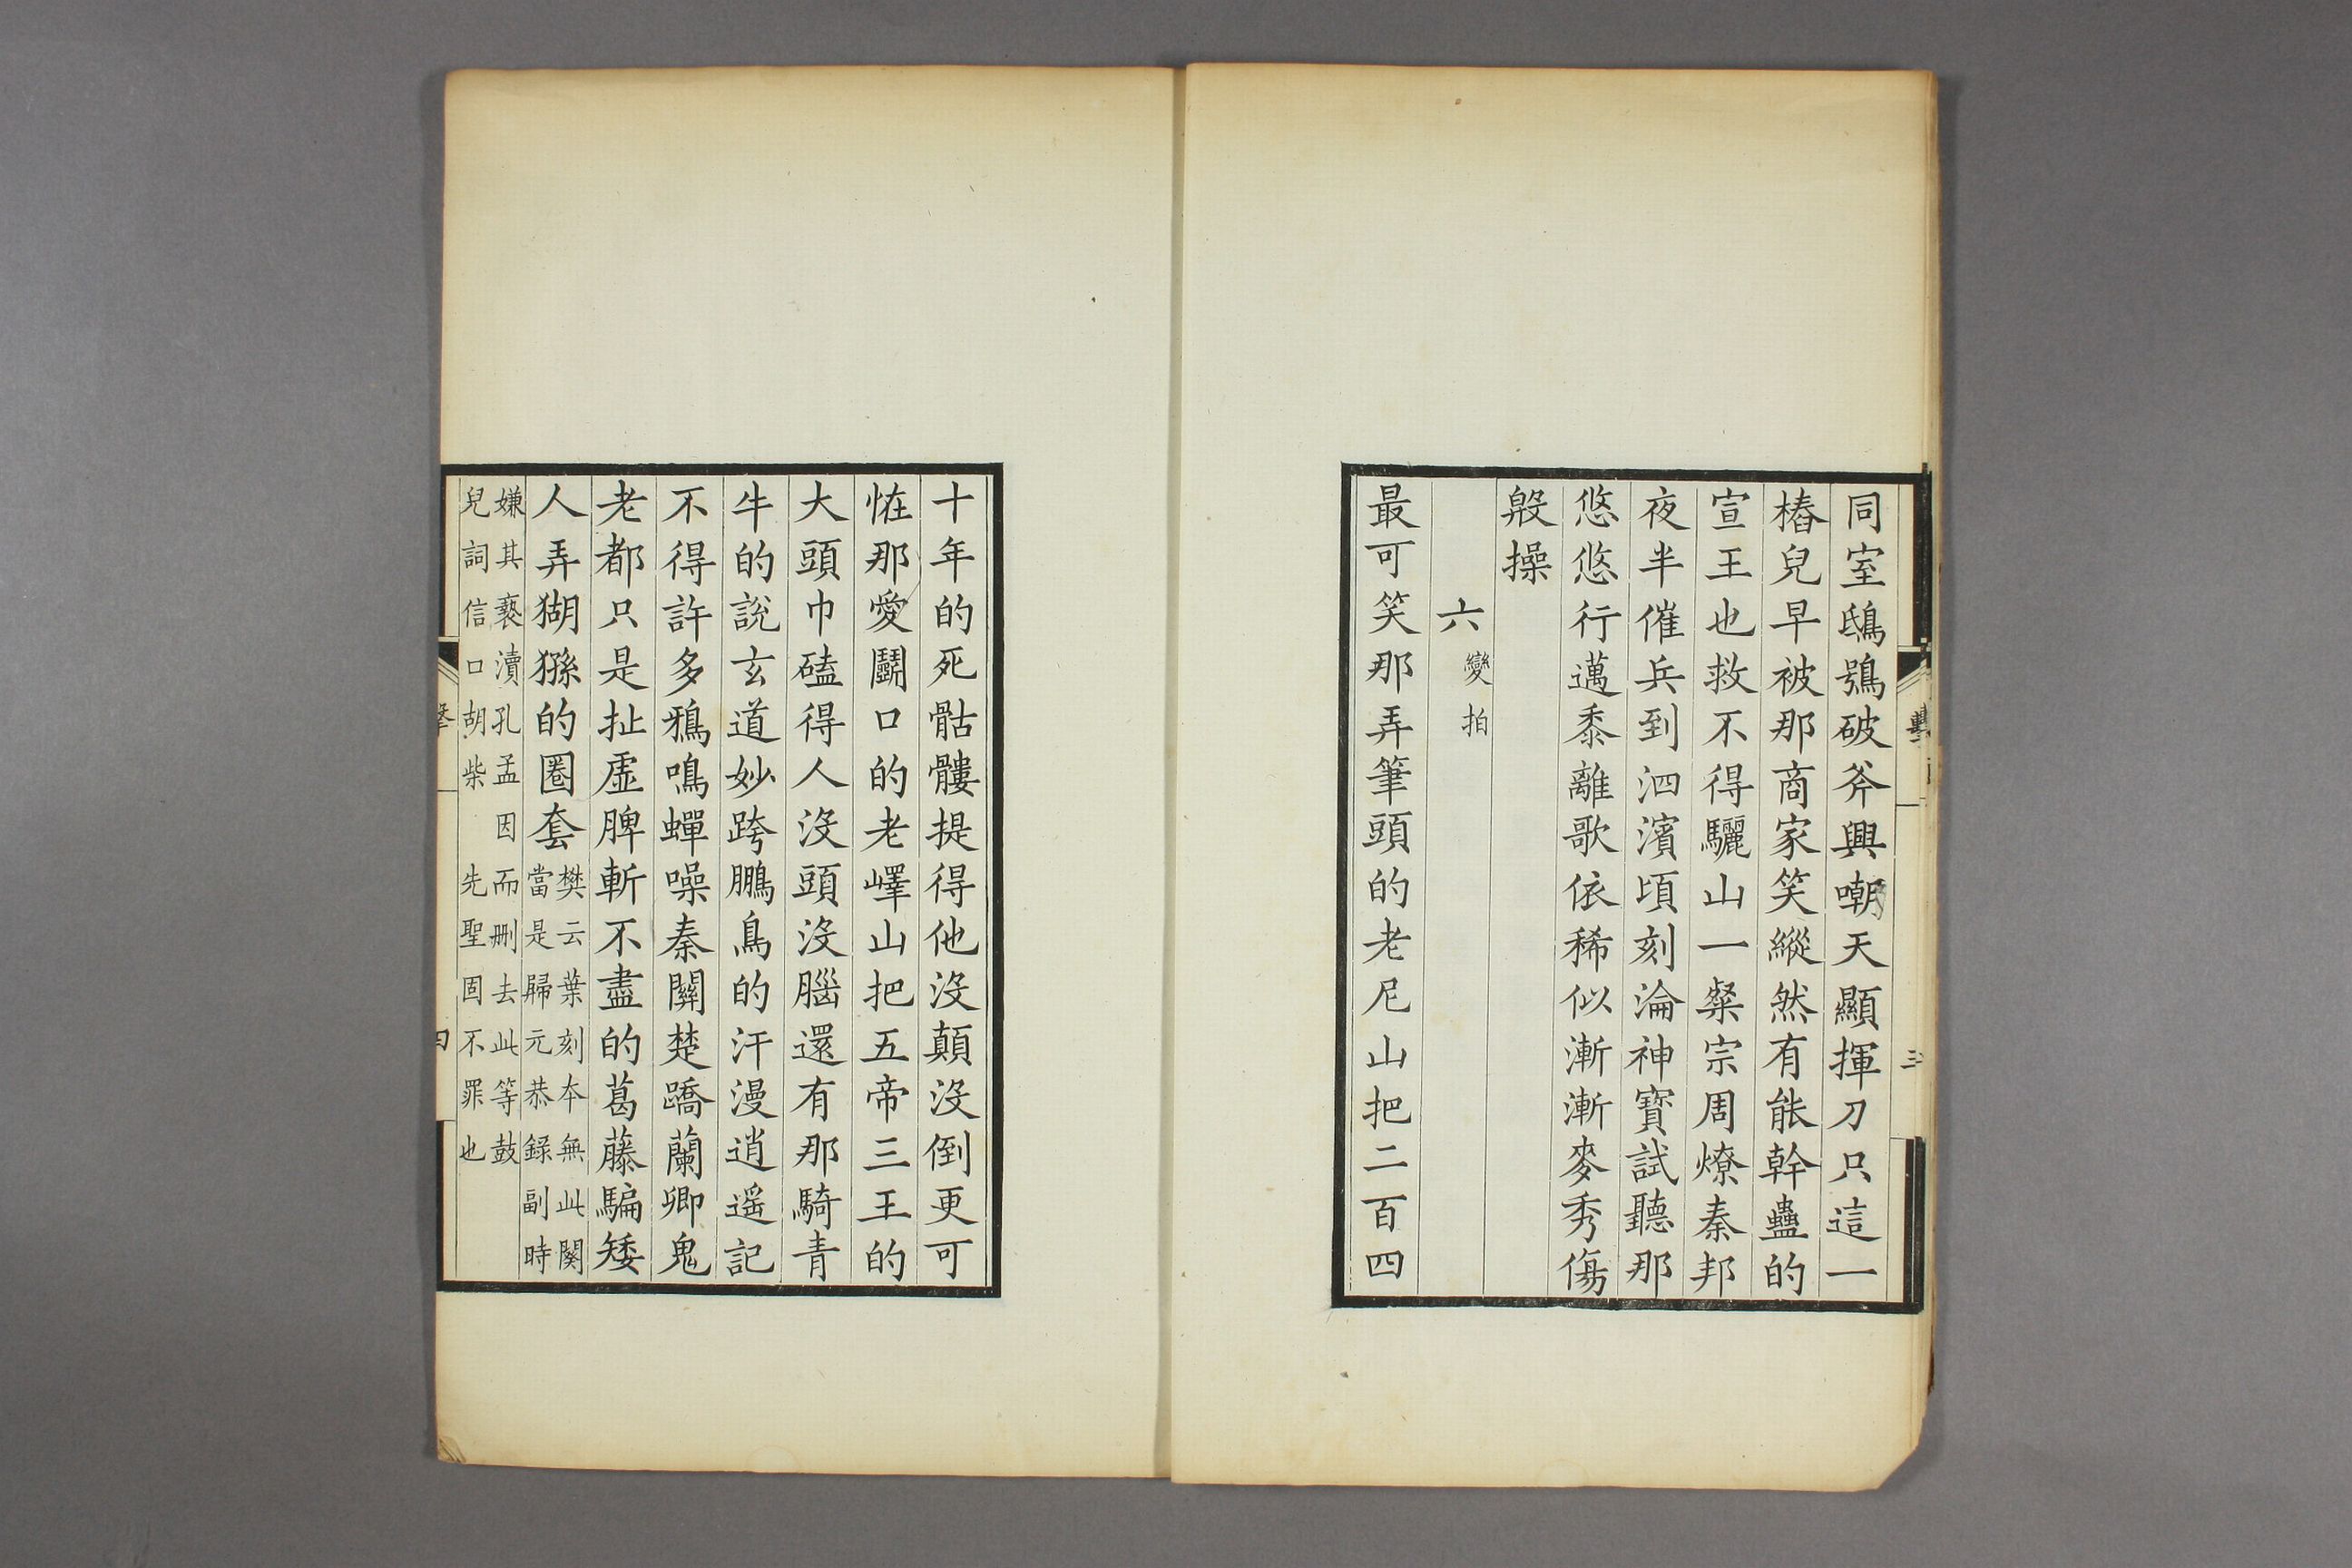 同室鴟鴞破斧興嘲天顯揮刀只這一
樁兒早被那商家笑縱然有能幹蠱的
宣王也救不得驪山一粲宗周燎秦邦
夜半催兵到泗濱頃刻淪神寶試聽那
悠悠行邁黍離歌依稀似漸漸麥秀傷
殷操
六變拍
最可笑那弄筆頭的老尼山把二百四
十年的死骷髏提得他沒顛沒倒更可
恠那愛鬭口的老嶧山把五帝三王的
大頭巾磕得人沒頭沒腦還有那騎青
牛的說玄道妙跨鵬鳥的汗漫逍遥記
不得許多鴉鳴蟬噪秦關楚蹻蘭卿鬼
老都只是扯虛脾斬不盡的葛藤騙矮
人弄猢猻的圈套
樊云葉刻本無此闋
當是歸元恭錄副時
嫌其褻瀆孔孟因而刪去此等鼓
兒詞信口胡柴 先聖固不罪也
三